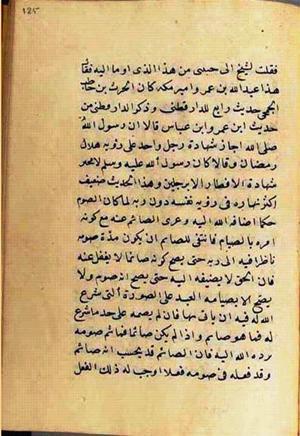 ١٢٥
فقلت لشيخ الى جنبى من هذا الذى اوما اليه فقال
هذا عبد الله بن عمر وامير مكة كان الحرث بن حاطب
الجمحى حديث رابع للدارقطنى وذكر الدارقطنى من
حديث ابن عمر وابن عباس قالا ان رسول الله
صلى الله اجاز شهادة رجل واحد على رؤية هلال
رمضان وقالا كان رسول الله عليه وسلم لا يجيز
شهادة الافطار الا برجلين وهذا الحديث ضعيف
نهاره فى رؤية نفسه دون ربه لما كان الصوم
حكما اضافه الله اليه وعرى الصائم عنه مع كونه
امره بالصيام فانتفى للصائم ان يكون مدة صومه
ناظرا فيه الى ربه حتى يصح كونه صائما لا يغفل عنه
فان الحق لا يضيفه اليه حتى يصح انه صوم ولا
يصح الا بصيامه العبد على الصورة التى شرع
الله له فيه ان ياتى بها فان لم يصمه على حد ما شرع
له فما هو صائم واذا لم يكن صائما فما ثم صومه
يرده الله اليه فان الصائم قد يحسب انه صائم
وقد فعله فى صومه فعلا اوجب له ذلك الفعل